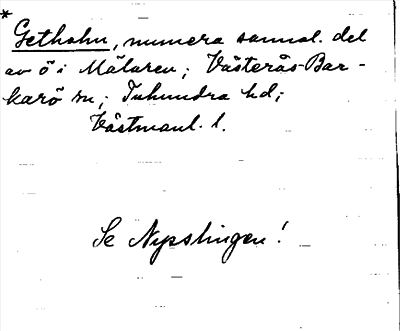 *
Gethohn, numera sannol. del
av ö i Mälaren; Västerås-Bar-
karö sn; Tuhundra hd;
Västmanl. l.
Se Nysslingen!